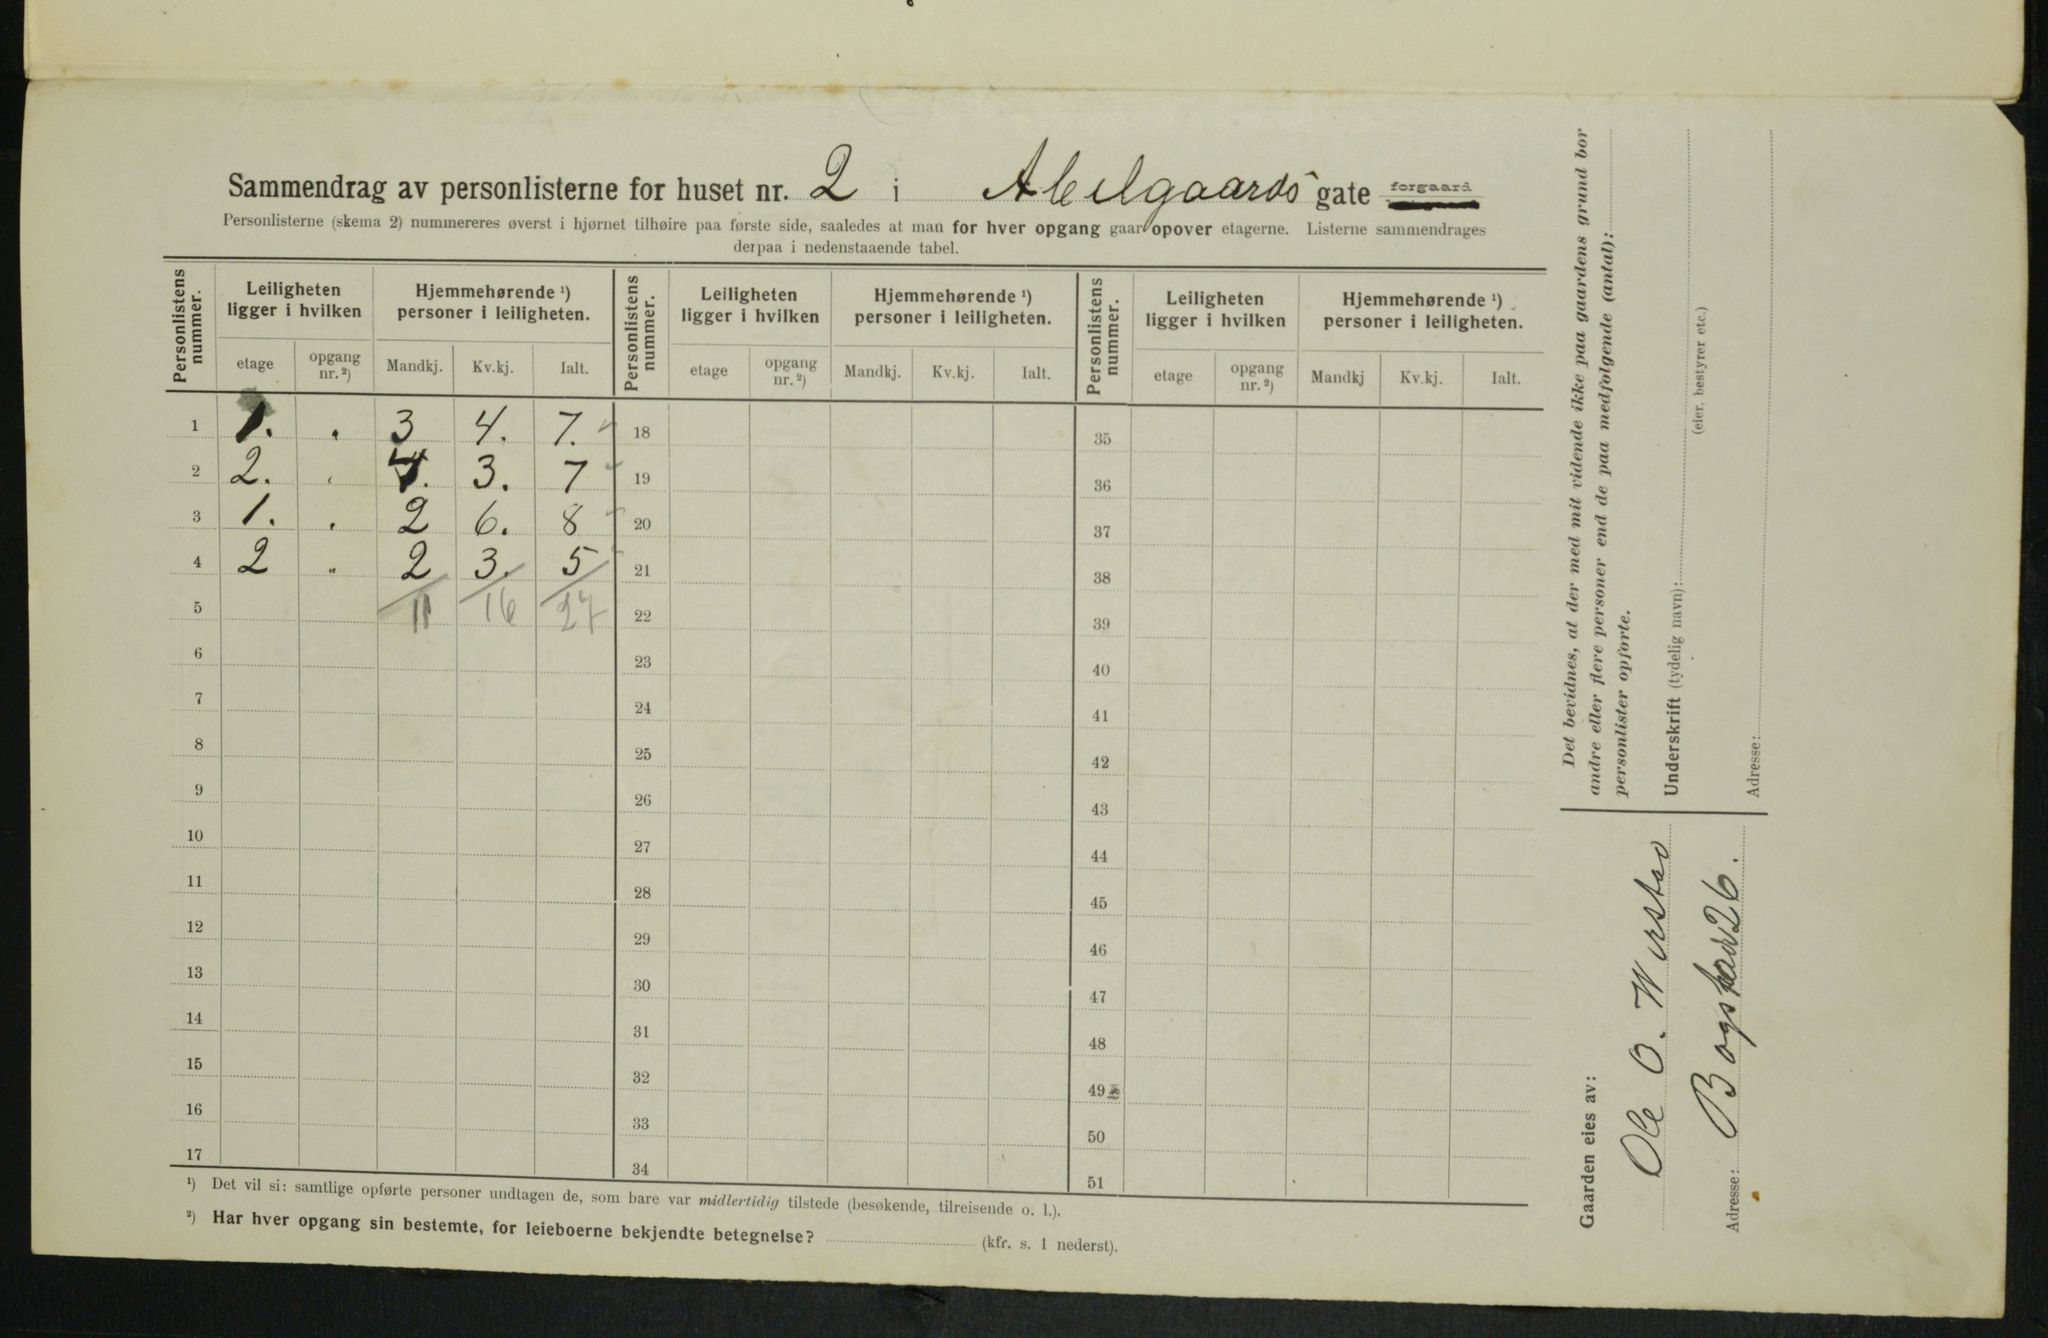 Sammendrag av personlisterne for huset nr. 2 i Abelgaards gate forgaard
Personlisterne (skema 2) nummereres øverst i hjørnet tilhøire paa første side, saaledes at man for hver opgang gaar opover etagerne. Listerne sammendrages
derpaa i nedenstaaende tabel.
Personlistens nummer. Leiligheten ligger i hvilken Hjemmehørende ¹) personer i leiligheten. Personlistens nummer. Leiligheten ligger i hvilken Hjemmehørende ¹) personer i leiligheten. Personlistens nummer. Leiligheten ligger i hvilken Hjemmehørende ¹) personer i leiligheten.
etage opgang nr. ²) Mandkj. Kv.kj. Ialt. etage opgang nr. ²) Mandkj. Kv.kj. Ialt. etage opgang nr. ²) Mandkj Kv.kj. Ialt.
1 1. . 3 4. 7. 18 35
2 2. . 4. 3. 7 19 36
3 1. . 2 6. 8 20 37
4 2 " 2 3. 5 21 38
5 11 16 27 22 39
6 23 40
7 24 41
8 25 42
9 26 43
10 27 44
11 28 45
12 29 46
13 30 47
14 31 48
15 32 49
16 33 50
17 34 51
¹) Det vil si: samtlige opførte personer undtagen de, som bare var midlertidig tilstede (besøkende, tilreisende o. l.).
²) Har hver opgang sin bestemte, for leieboerne bekjendte betegnelse? (kfr. s. 1 nederst).
Det bevidnes, at der med mit vidende ikke paa gaardens grund bor
andre eller flere personer end de paa medfølgende (antal):
personlister opførte.
Underskrift (tydelig navn):
(eier, bestyrer etc.)
Adresse:
Gaarden eies av:
Ole O.
Adresse: 26.